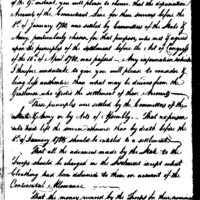 of the G: instead, you will please to observe, that the depreciation
Accounts of the Connecticut Line for their services before the
1st of January 1780 were settled by Committees of the State &
Army, particularly chosen for that purpose, who met & agreed
upon the principles of the settlement before the Act of Congress
of the 10th of April 1780, was passed. Any explanation which
I therefore undertake to give you will please to consider as
being less authentic than what may be derived from the
Gentlemen who effected the settlement of those Accounts
These principles were settled by the Committees of the
State & Army or by Acts of Assembly. That no person
who had left the service otherwise than by death before the
1st of January 1780, should be entitled to a settlement
That all the advances made by the State to the
Troops should be changed in the Settlement except what
cloathing had been delivered to them on account of the
Continental Allowance
That the money received by the Troops for the